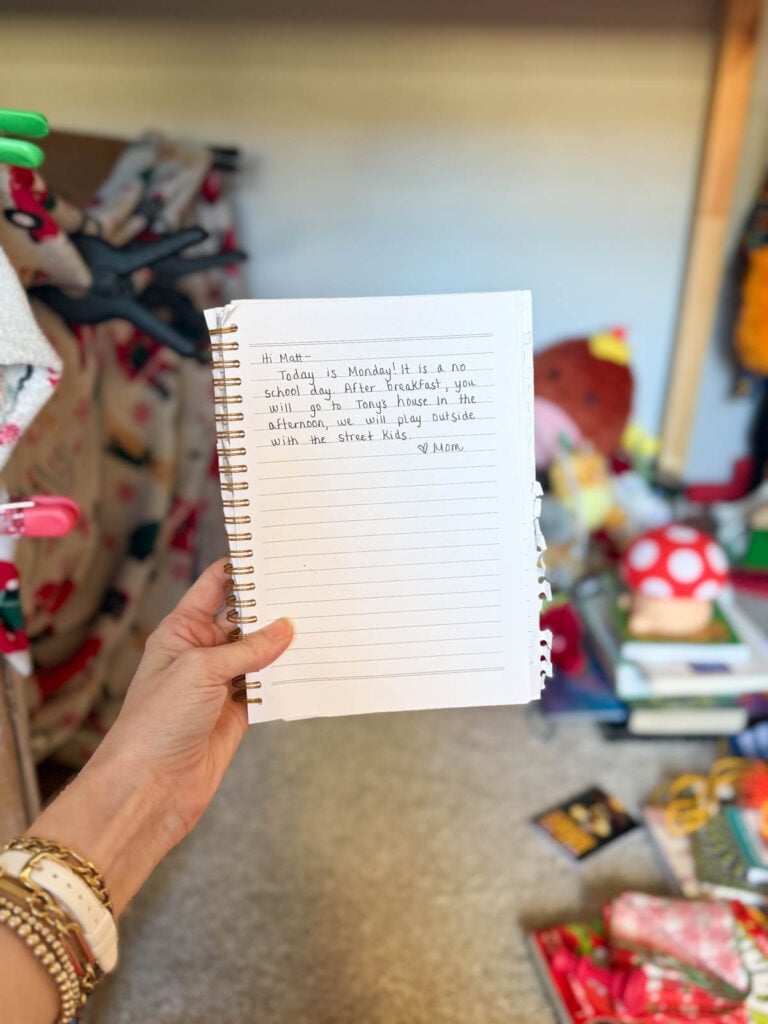 Hi Matt-
Today is Monday! It is a no
school day. After breakfast, you
will go to Tony's house. In the
afternoon, we will play outside
with the street kids.
♡ Mom